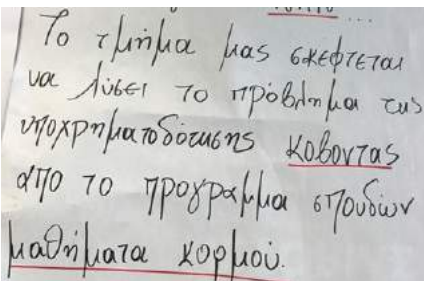 Το τμήμα μας σκέφτεται
να λύσει το πρόβλημα της
υποχρηματοδότησης κόβοντας
από το πρόγραμμα σπουδών
μαθήματα κορμού.